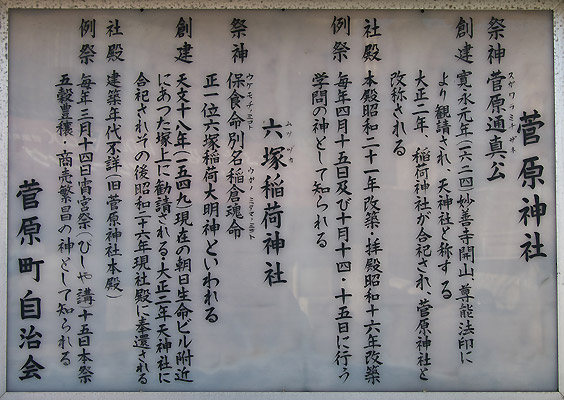 菅原神社
祭神 菅原道真公
スガワラミチザネ
創建 寛永元年(一六二四)妙善寺開山、尊能法印に
より観請され、天神社と称する
大正二年、稲荷神社が合祀され、菅原神社と
改称される
社殿 本殿昭和二十一年改築・拝殿昭和十六年改築
例祭 毎年四月十五日及び十月十四・十五日に行う
学問の神として知られる
六塚稲荷神社
ムツヅカ
祭神 保食命別名稲倉魂命
ウケモチノミコト ウガノミタマノミコト
正一位六塚稲荷大明神といわれる
創建 天文十八年(一五四九)現在の朝日生命ビル附近
にあった塚上に勧請される・大正二年天神社に
合祀されその後昭和二十六年現社殿に奉還される
社殿 建築年代不詳(旧菅原神社本殿)
例祭 毎年三月十四日宵宮祭(びしゃ講)十五日本祭
五穀豊穣・商売繁昌の神として知られる
菅原町自治会